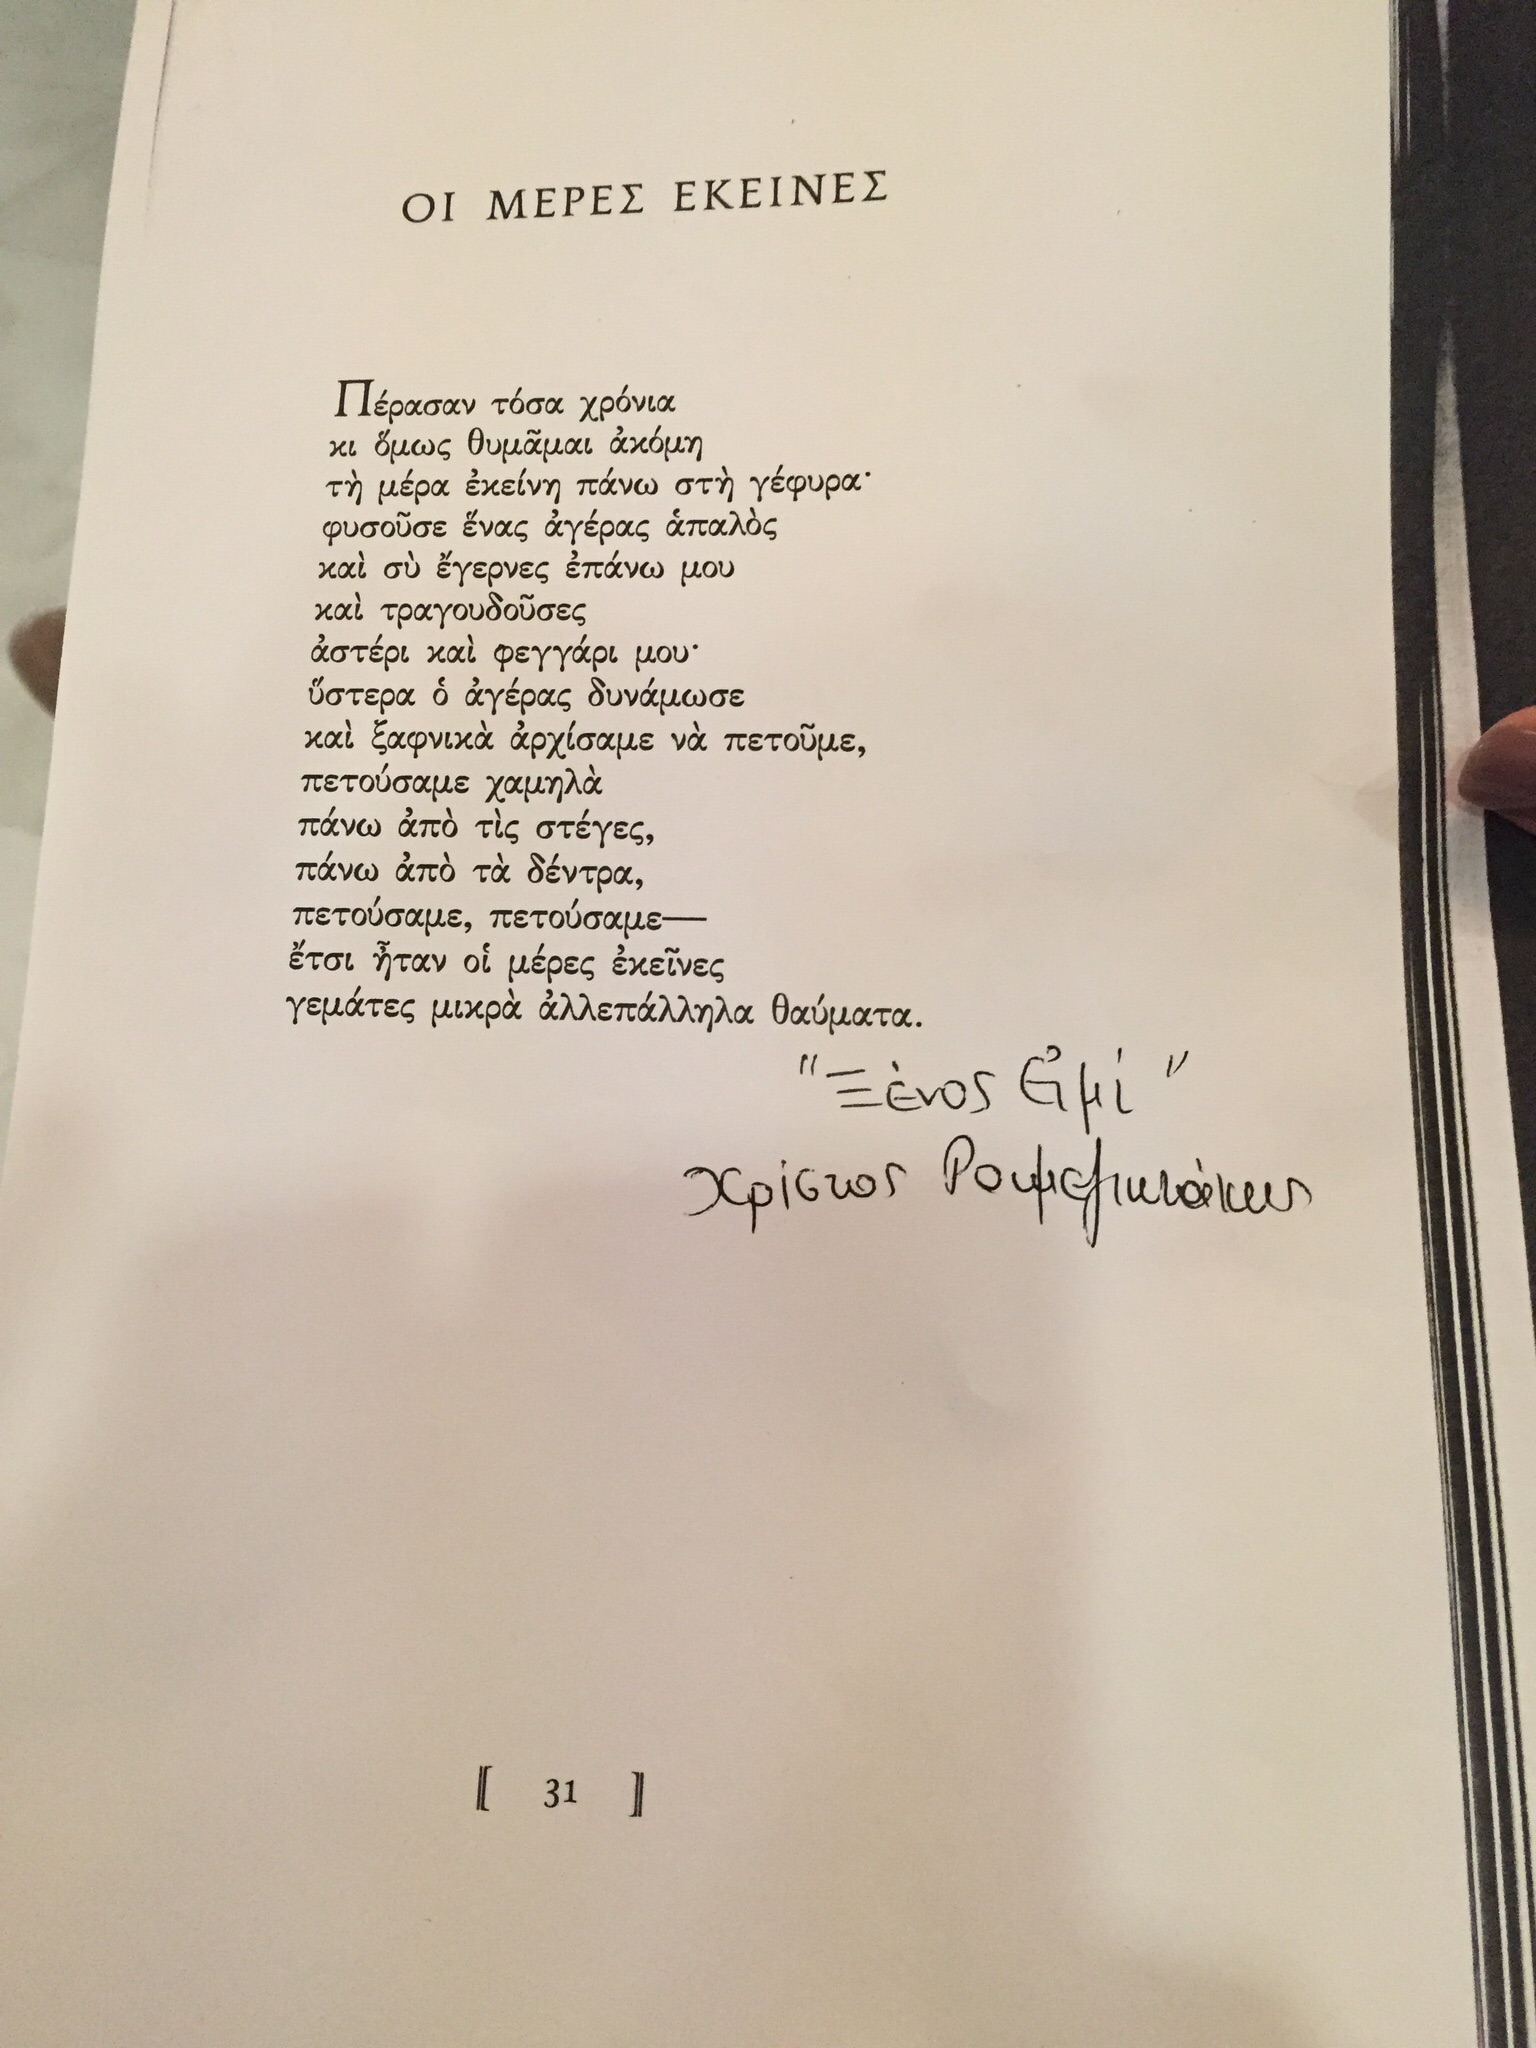 ΟΙ ΜΕΡΕΣ ΕΚΕΙΝΕΣ
Πέρασαν τόσα χρόνια
κι ὅμως θυμᾶμαι ἀκόμη
τὴ μέρα ἐκείνη πάνω στὴ γέφυρα·
φυσοῦσε ἕνας ἀγέρας ἁπαλὸς
καὶ σὺ ἔγερνες ἐπάνω μου
καὶ τραγουδοῦσες
ἀστέρι καὶ φεγγάρι μου·
ὕστερα ὁ ἀγέρας δυνάμωσε
καὶ ξαφνικὰ ἀρχίσαμε νὰ πετοῦμε,
πετούσαμε χαμηλὰ
πάνω ἀπὸ τὶς στέγες,
πάνω ἀπὸ τὰ δέντρα,
πετούσαμε, πετούσαμε—
ἔτσι ἦταν οἱ μέρες ἐκεῖνες
γεμάτες μικρὰ ἀλλεπάλληλα θαύματα.
"Ξένος Εἰμί"
Χρίστος Ρουμελιωτάκης
⟦ 31 ⟧